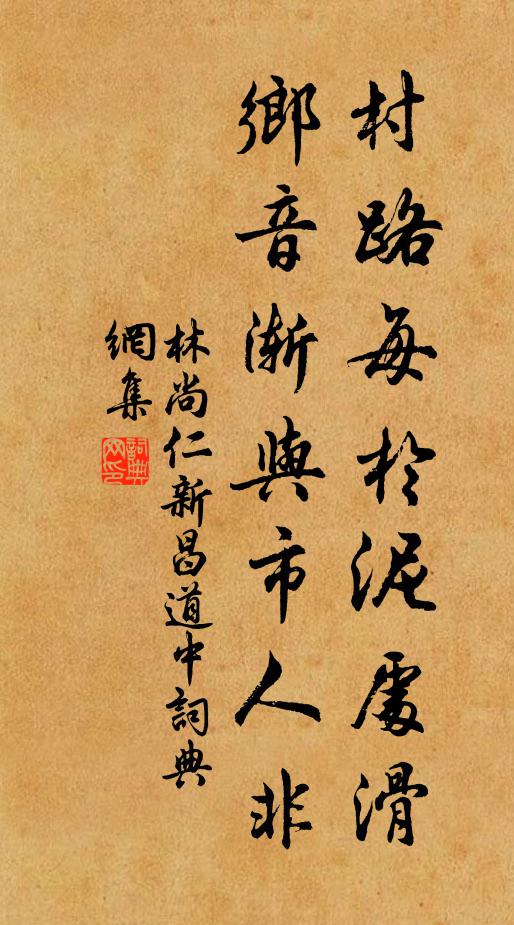 村路每於泥處滑
鄉音漸與市人非
林尚仁新昌道中詞典
網集
詞典
網印